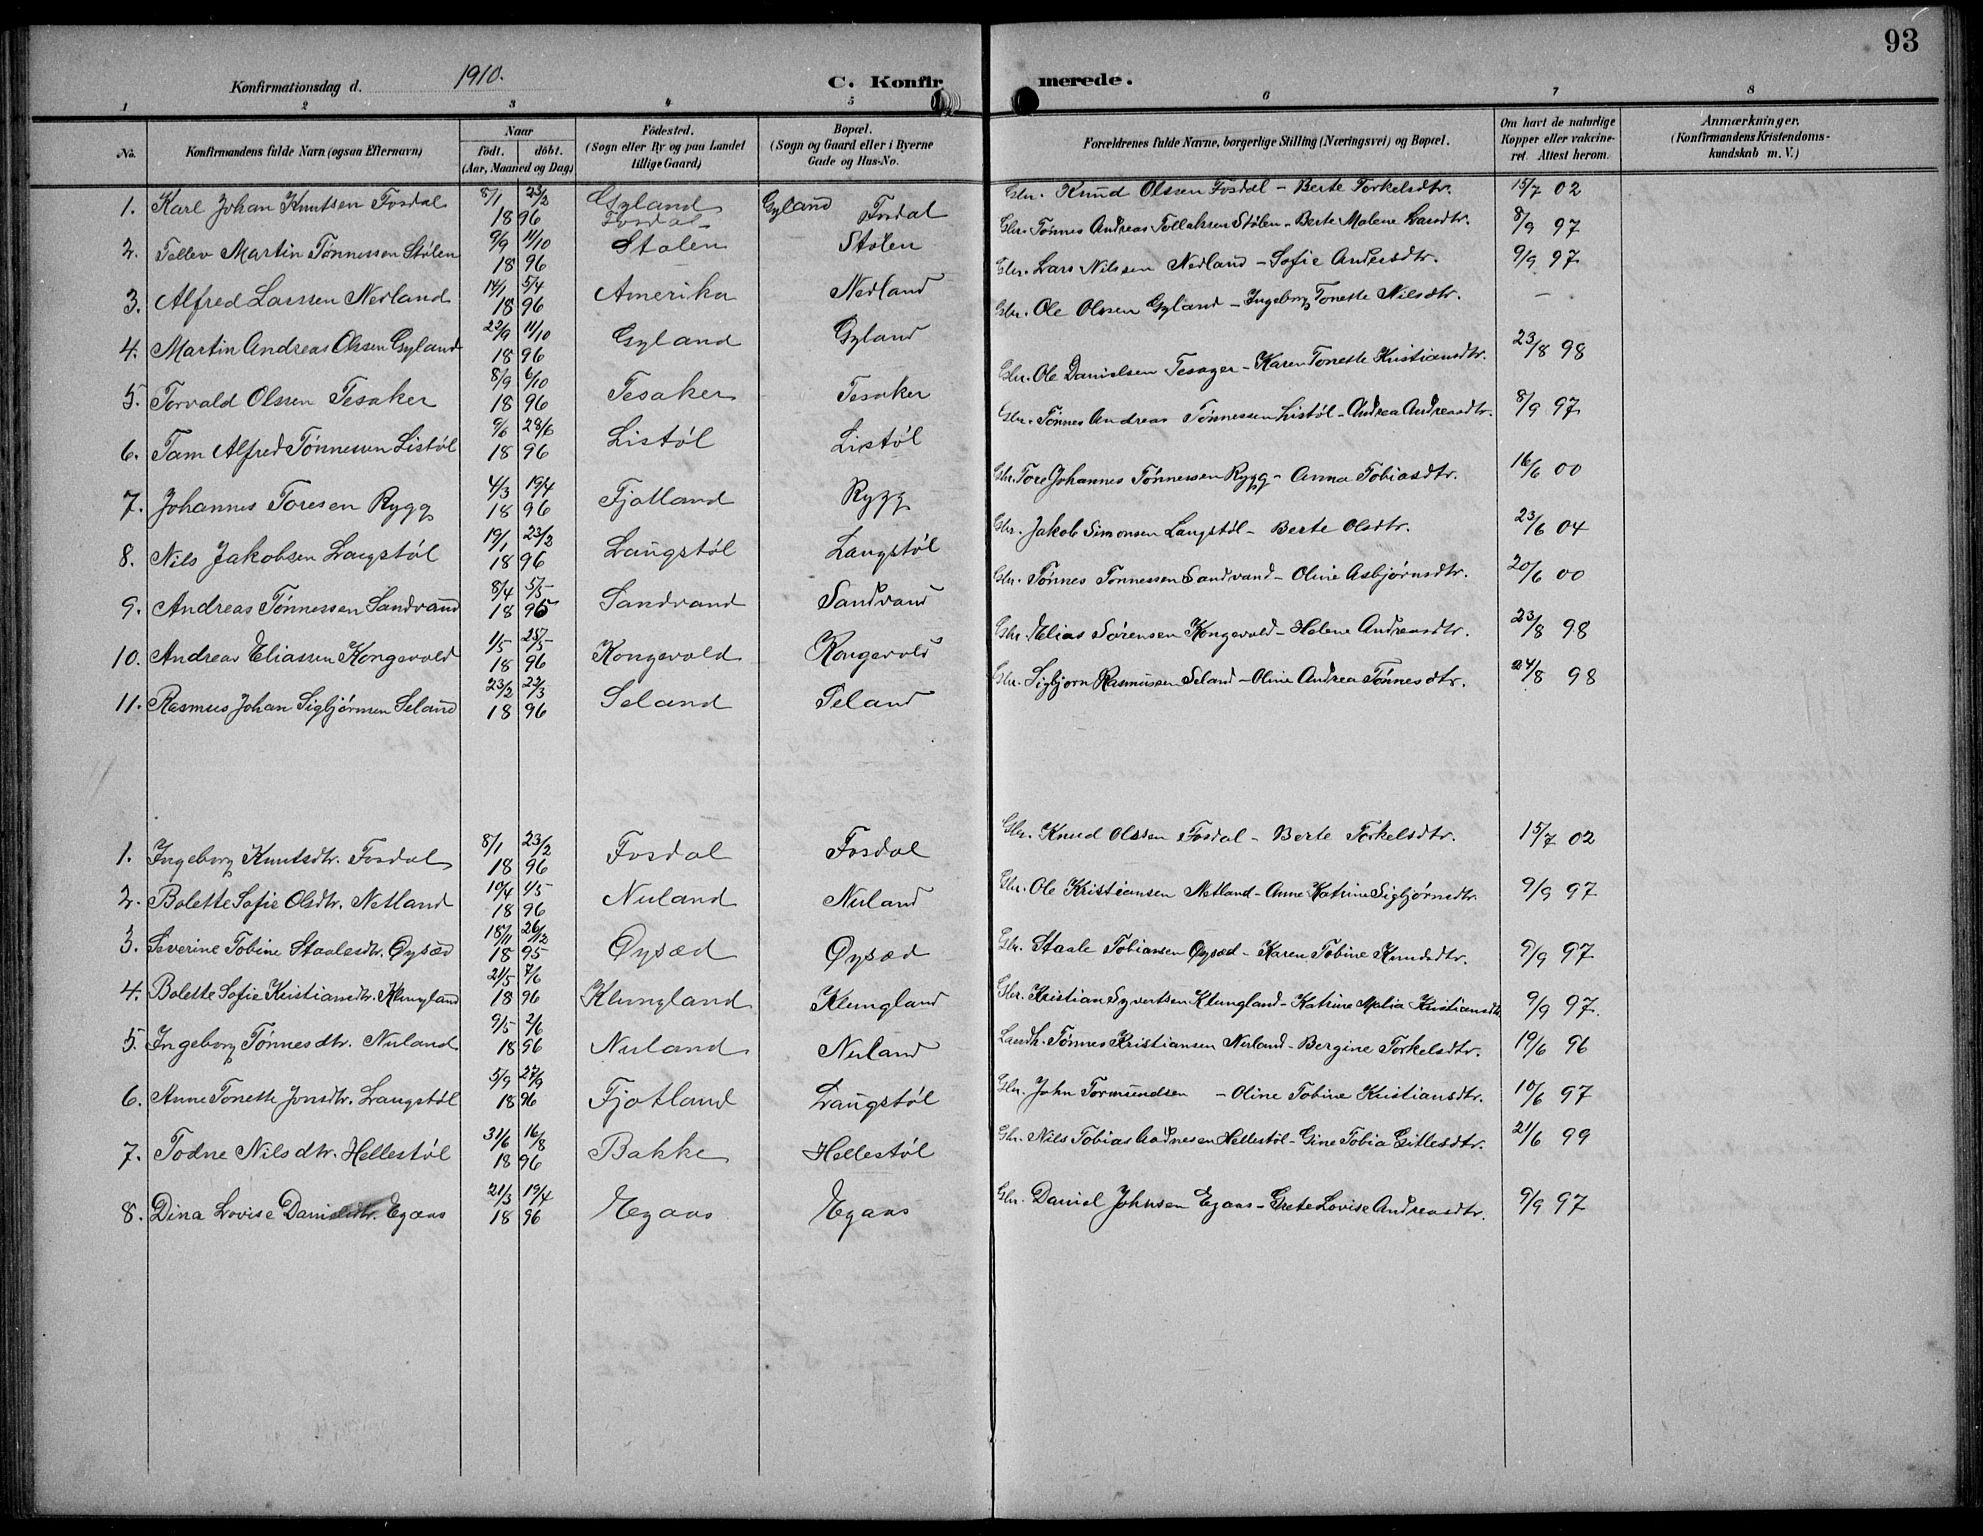 93
Konfirmationsdag d. 1910. C. Konfirmerede.
1 2 3 4 5 6 7 8
No. Konfirmandens fulde Navn (ogsaa Efternavn) Naar født. døbt. (Aar, Maaned og Dag) Fødested. (Sogn eller By og paa Landet tillige Gaard) Bopæl. (Sogn og Gaard eller i Byerne Gade og Hus-No. Forældrenes fulde Navne, borgerlige Stilling (Næringsvei) og Bopæl. Om havt de naturlige Kopper eller vakcineret. Attest herom. Anmærkninger. (Konfirmandens Kristendomskundskab m. V.)
1. Karl Johan Knutsen Fosdal 8/1 23/2 1896 Gyland Fosdal Gyland Fosdal Gbr. Knud Olssen Fosdal - Berte Torkelsdtr. 15/7 02
2. Tellev Martin Tønnessen Stølen 9/9 11/10 1896 Stølen Stølen Gbr. Tønnes Andreas Tollaksen Stølen - Berte Malene Larsdtr. 8/9 97
3. Alfred Larssen Nedland 14/1 5/4 1896 Amerika Nedland Gbr. Lars Nilssen Nedland - Sofie Andersdtr. 9/9 97
4. Martin Andreas Olssen Gyland 22/9 11/10 1896 Gyland Gyland Gbr. Ole Olssen Gyland - Ingeborg Tonette Nilsdtr. -
5. Torvald Olssen Tesaker 8/9 6/10 1896 Tesaker Tesaker Gbr. Ole Danielsen Tesager - Karen Tonette Kristiansdtr. 23/8 98
6. Tam Alfred Tønnessen Listøl 9/6 28/6 1896 Listøl Listøl Gbr. Tønnes Andreas Tønnessen Listøl - Andrea Andreasdtr. 8/9 97
7. Johannes Toresen Rygg 4/3 19/4 1896 Fjotland Rygg Gbr. Tore Johannes Tønnessen Rygg - Anna Tobiasdtr. 16/6 00
8. Nils Jakobsen Langstøl 19/1 23/2 1896 Langstøl Langstøl Gbr. Jakob Simonsen Langstøl - Berte Olsdtr. 23/6 04
9. Andreas Tønnessen Sandvand 8/4 5/5 1895 Sandvand Sandvand Gbr. Tønnes Tonnessen Sandvand - Oline Asbjørnsdtr. 20/6 00
10. Andreas Eliassen Kongevold 1/5 25/5 1896 Kongevold Kongevold Gbr. Elias Sørensen Kongevold - Helene Andreasdtr. 23/8 98
11. Rasmus Johan Sigbjørnsen Seland 23/2 22/3 1896 Seland Seland Gbr. Sigbjorn Rasmussen Seland - Oline Andrea Tønnesdtr. 24/8 98
1. Ingeborg Knutsdtr. Fosdal 8/1 23/2 1896 Fosdal Fosdal Gbr. Knud Olssen Fosdal - Berte Torkelsdtr. 15/7 02
2. Bolette Sofie Olsdtr. Netland 19/4 4/5 1896 Nuland Nuland Gbr. Ole Kristiansen Netland - Anne Katrine Sigbjørnsdtr. 9/9 97
3. Severine Tobine Staalesdtr. Øysæd 18/11 26/12 1895 Øysæd Øysæd Gbr. Staale Tobiansen Øysæd - Karen Tobine Knudsdtr. 9/9 97
4. Bolette Sofie Kristiansdtr. Klungland 21/5 7/6 1896 Klungland Klungland Gbr. Kristian Syvertsen Klungland - Katrine Malia Kristiansdtr. 9/9 97.
5. Ingeborg Tønnesdtr. Nuland 9/5 2/6 1896 Nuland Nuland Landh. Tønnes Kristiansen Nuland - Bergine Torkelsdtr. 19/6 96
6. Anne Tonette Jonsdtr. Langstøl 5/9 27/9 1896 Fjotland Langstøl Gbr. John Tormundsen - Oline Tobine Kristiansdtr. 10/6 97
7. Todne Nilsdtr. Hellestøl 31/6 16/8 1896 Bakke Hellestøl Gbr. Nils Tobias Aadnesen Hellestøl - Gine Tobia Gitlesdtr. 21/6 99
8. Dina Lovise Danielsdtr. Egaas 21/3 19/4 1896 Egaas Egaas Gbr. Daniel Johnsen Egaas - Grete Lovise Andreasdtr. 9/9 97